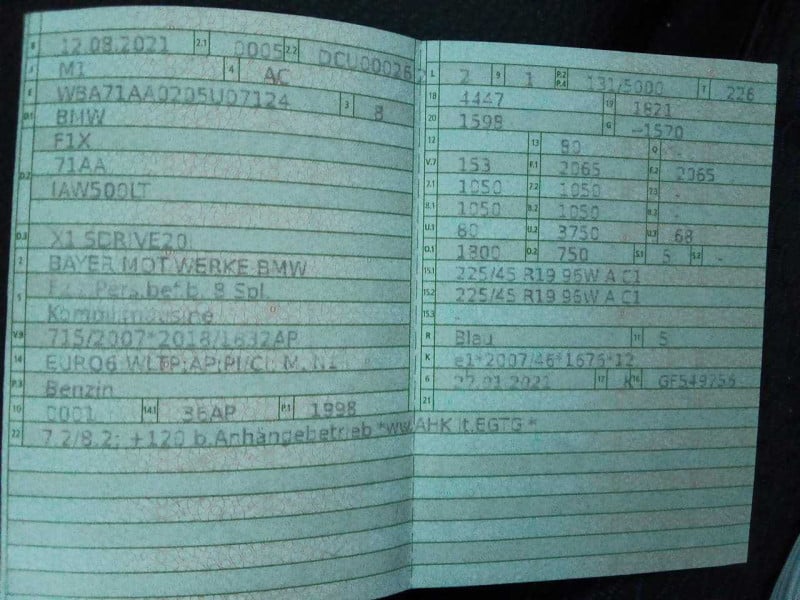 B 12.08.2021 2.1 0005 2.2
J M1 4 AC
E WBA71AA0205U07124 3 8
D.1 BMW
F1X
71AA
D.2 IAW500LT
D.3 X1 SDRIVE20I
2 BAYER.MOT.WERKE-BMW
5 Fz.z.Pers.bef.b. 8 Spl.
Kombilimousine
V.9 715/2007*2018/1832AP
14 EURO6 WLTP;AP;PI/CI; M, N1
P.3 Benzin
10 0001 14.1 36AP P.1 1998
22 7.2/8.2: +120 b.Anhängebetrieb *ww.AHK lt.EGTG *
L 2 9 1 P.2 P.4 131/5000 T 226
18 4447 19 1821
20 1598 G -1570
12 13 80 Q -
V.7 153 F.1 2065 F.2 2065
7.1 1050 7.2 1050 7.3 -
8.1 1050 8.2 1050 8.3 -
U.1 80 U.2 3750 U.3 68
O.1 1800 O.2 750 S.1 5 S.2 -
15.1 225/45 R19 96W A C1
15.2 225/45 R19 96W A C1
15.3 -
R Blau 11 5
K e1*2007/46*1676*12
6 27.01.2021 17 K 16
21